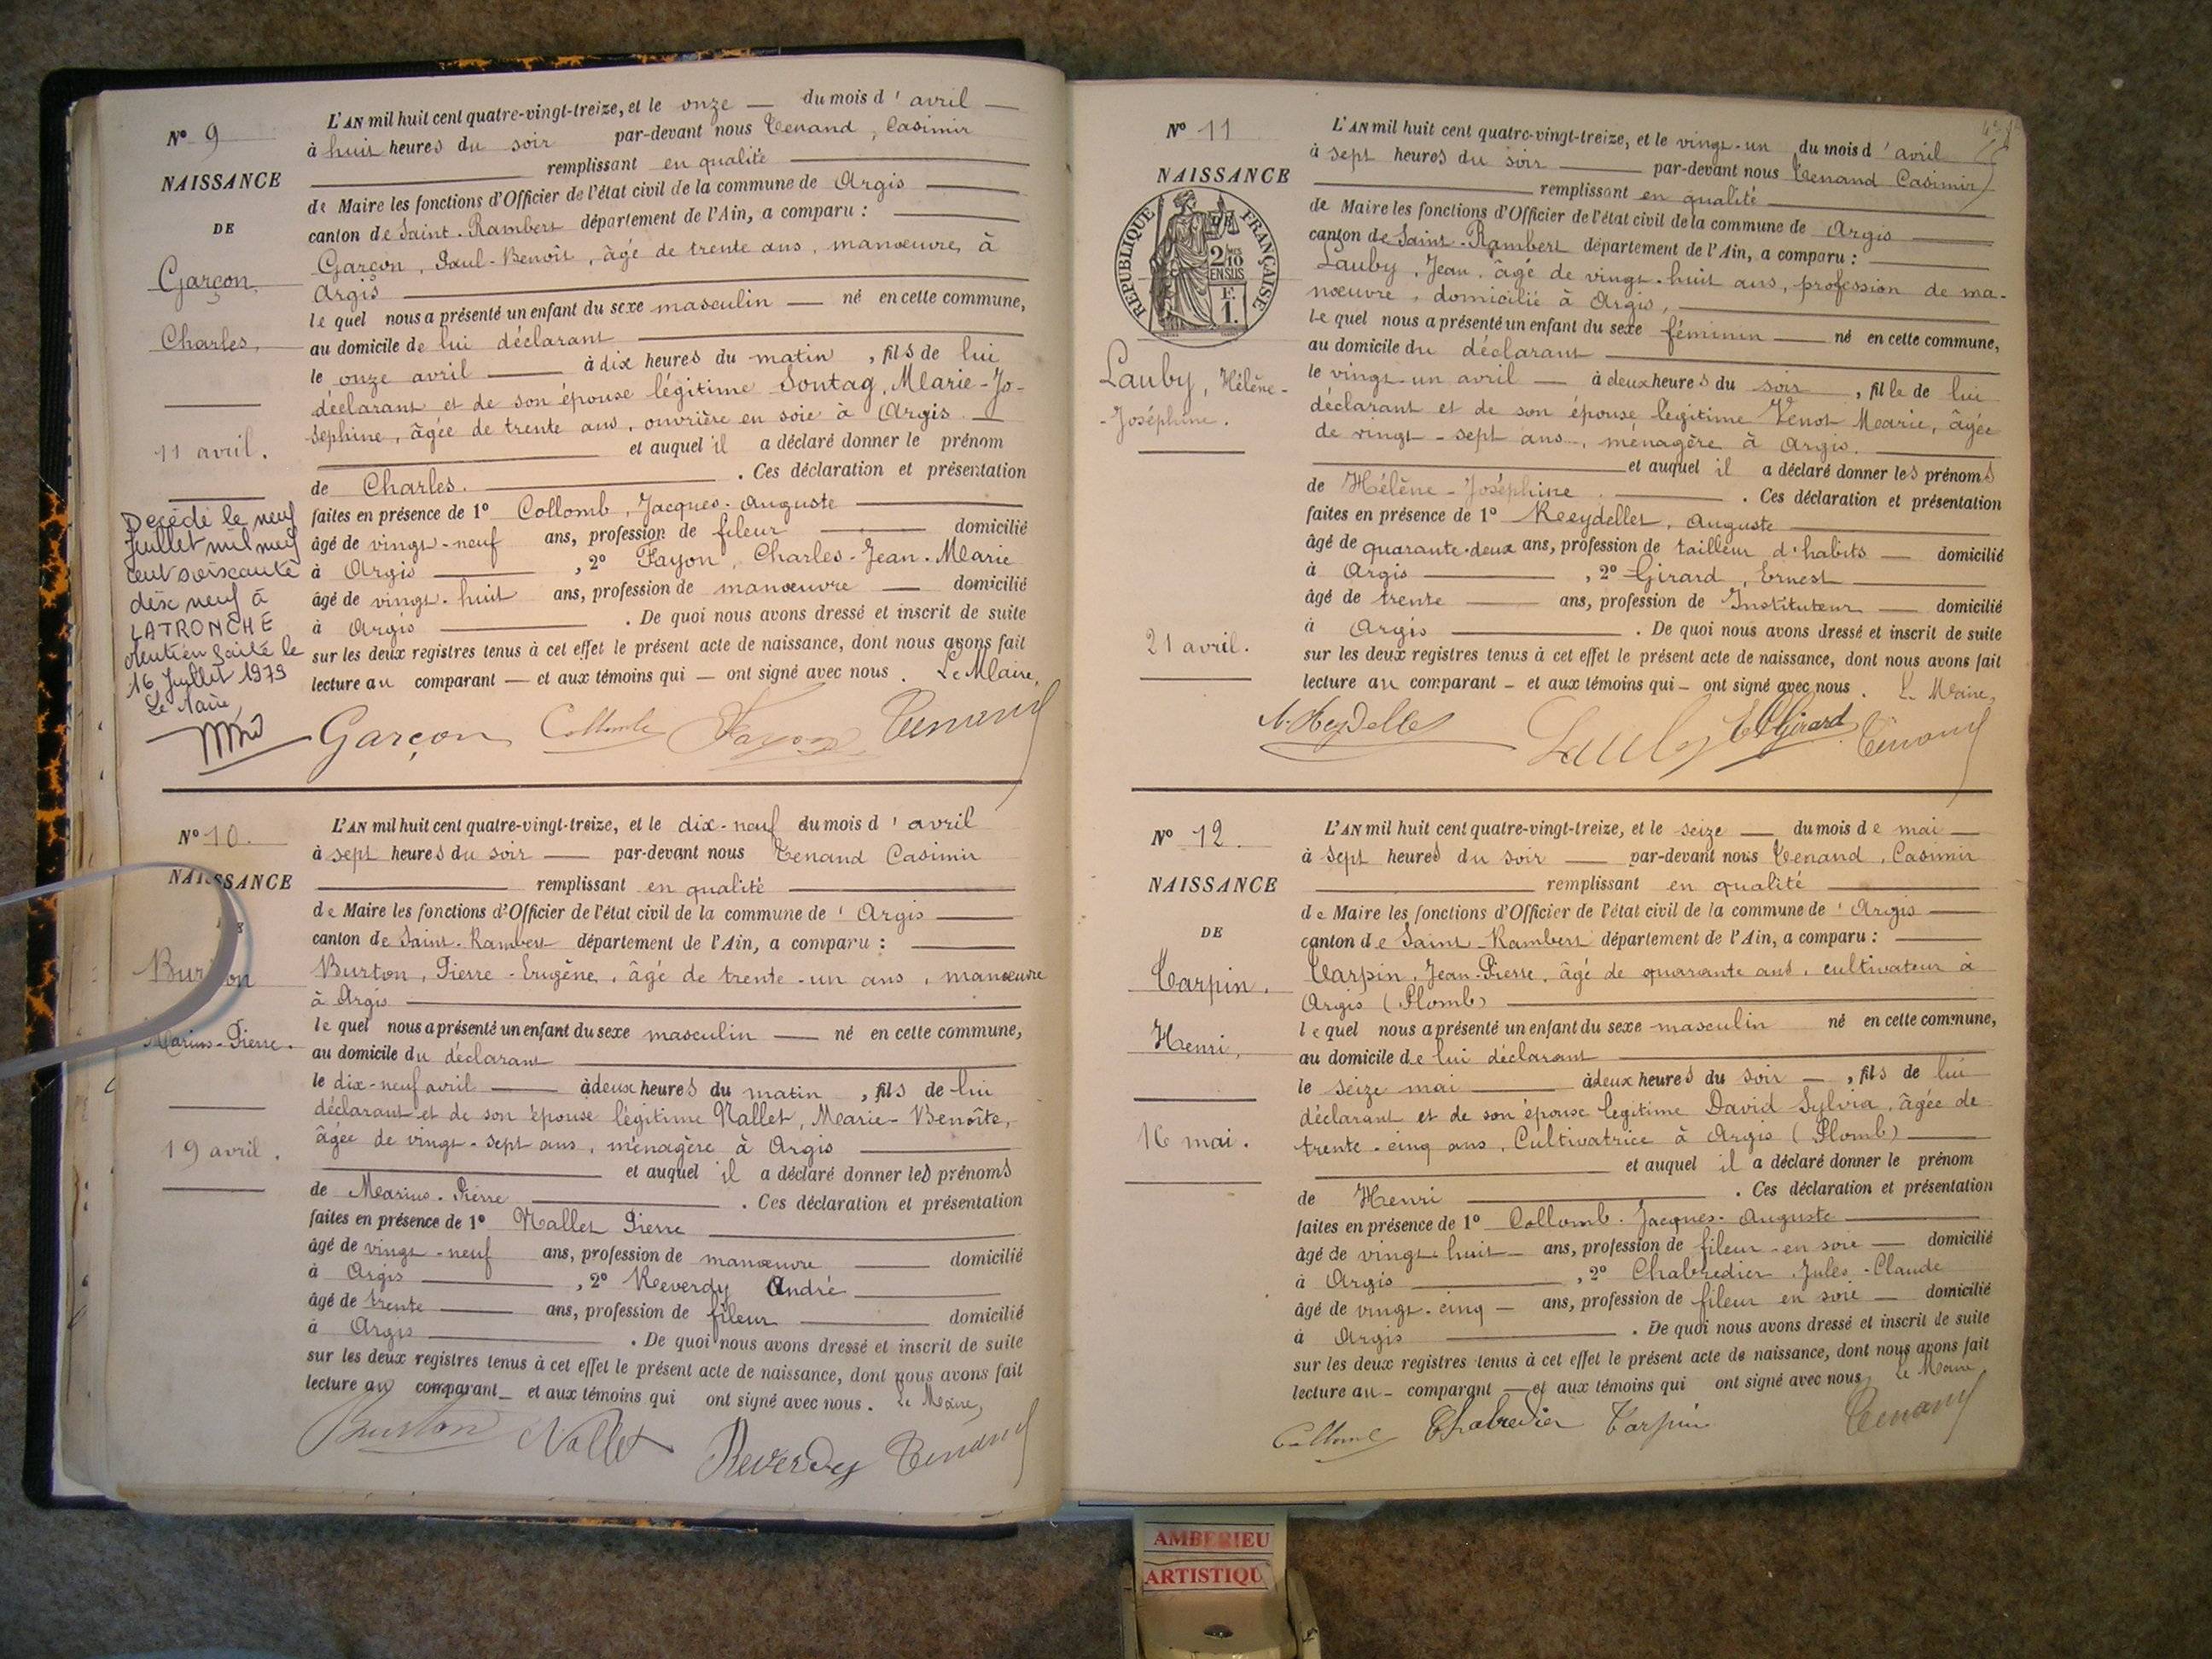 N° 9
NAISSANCE
DE
Garçon,
Charles,
11 avril.
Décédé le neuf
Juillet mil neuf
cent soixante
dix neuf à
LA TRONCHE
Mention faite le
16 Juillet 1979
Le Maire,
L'AN mil huit cent quatre-vingt-treize, et le onze — du mois d'avril —
à huit heures du soir par-devant nous Tenand, Casimir
remplissant en qualité
de Maire les fonctions d'Officier de l'état civil de la commune de Argis
canton de Saint-Rambert département de l'Ain, a comparu :
Garçon, Paul-Benoît, âgé de trente ans, manœuvre, à
Argis
lequel nous a présenté un enfant du sexe masculin — né en cette commune,
au domicile de lui déclarant
le onze avril — à dix heures du matin, fils de lui
déclarant et de son épouse légitime Sontag, Marie-Jo-
sephine, âgée de trente ans, ouvrière en soie à Argis. —
et auquel il a déclaré donner le prénom
de Charles. — . Ces déclaration et présentation
faites en présence de 1° Collomb, Jacques-Auguste
âgé de vingt-neuf ans, profession de fileur — domicilié
à Argis — , 2° Fayon, Charles-Jean-Marie
âgé de vingt-huit ans, profession de manœuvre — domicilié
à Argis — . De quoi nous avons dressé et inscrit de suite
sur les deux registres tenus à cet effet le présent acte de naissance, dont nous avons fait
lecture au comparant — et aux témoins qui — ont signé avec nous. Le Maire,
Garçon Collomb Fayon Tenand
N° 10.
NAISSANCE
Burton
Marius-Pierre.
19 avril.
L'AN mil huit cent quatre-vingt-treize, et le dix-neuf du mois d'avril
à sept heures du soir — par-devant nous Tenand Casimir
remplissant en qualité
de Maire les fonctions d'Officier de l'état civil de la commune de Argis
canton de Saint-Rambert département de l'Ain, a comparu :
Burton, Pierre-Eugène, âgé de trente-un ans, manœuvre
à Argis
lequel nous a présenté un enfant du sexe masculin — né en cette commune,
au domicile du déclarant
le dix-neuf avril — à deux heures du matin, fils de lui
déclarant et de son épouse légitime Nallet, Marie-Benoîte,
âgée de vingt-sept ans, ménagère à Argis
et auquel il a déclaré donner les prénoms
de Marius-Pierre — . Ces déclaration et présentation
faites en présence de 1° Nallet Pierre
âgé de vingt-neuf ans, profession de manœuvre — domicilié
à Argis — , 2° Reverdy André
âgé de trente — ans, profession de fileur — domicilié
à Argis — . De quoi nous avons dressé et inscrit de suite
sur les deux registres tenus à cet effet le présent acte de naissance, dont nous avons fait
lecture au comparant — et aux témoins qui ont signé avec nous. Le Maire,
Burton Nallet Reverdy Tenand
N° 11
NAISSANCE
RÉPUBLIQUE FRANÇAISE
2/10 EN SUS
F.
1.
Lauby, Hélène-
-Joséphine.
21 avril.
L'AN mil huit cent quatre-vingt-treize, et le vingt-un du mois d'avril
à sept heures du soir — par-devant nous Tenand Casimir
remplissant en qualité
de Maire les fonctions d'Officier de l'état civil de la commune de Argis
canton de Saint-Rambert département de l'Ain, a comparu :
Lauby, Jean, âgé de vingt-huit ans, profession de ma-
nœuvre, domicilié à Argis,
lequel nous a présenté un enfant du sexe féminin — né en cette commune,
au domicile du déclarant
le vingt-un avril — à deux heures du soir, fille de lui
déclarant et de son épouse légitime Venot Marie, âgée
de vingt-sept ans, ménagère à Argis.
et auquel il a déclaré donner les prénoms
de Hélène-Joséphine. — . Ces déclaration et présentation
faites en présence de 1° Reydellet, Auguste
âgé de quarante-deux ans, profession de tailleur d'habits — domicilié
à Argis — , 2° Girard, Ernest
âgé de trente — ans, profession de Instituteur — domicilié
à Argis — . De quoi nous avons dressé et inscrit de suite
sur les deux registres tenus à cet effet le présent acte de naissance, dont nous avons fait
lecture au comparant — et aux témoins qui — ont signé avec nous. Le Maire,
A. Reydellet Lauby E. Girard Tenand
N° 12.
NAISSANCE
DE
Tarpin.
Henri,
16 mai.
L'AN mil huit cent quatre-vingt-treize, et le seize — du mois de mai —
à sept heures du soir — par-devant nous Tenand, Casimir
remplissant en qualité
de Maire les fonctions d'Officier de l'état civil de la commune de Argis
canton de Saint-Rambert département de l'Ain, a comparu :
Tarpin, Jean-Pierre, âgé de quarante ans, cultivateur à
Argis (Plomb)
lequel nous a présenté un enfant du sexe masculin né en cette commune,
au domicile de lui déclarant
le seize mai — à deux heures du soir —, fils de lui
déclarant et de son épouse légitime David Sylvia, âgée de
trente-cinq ans, Cultivatrice à Argis (Plomb)
et auquel il a déclaré donner le prénom
de Henri — . Ces déclaration et présentation
faites en présence de 1° Collomb-Jacques-Auguste
âgé de vingt-huit — ans, profession de fileur en soie — domicilié
à Argis — , 2° Chabredier, Jules-Claude
âgé de vingt-cinq — ans, profession de fileur en soie — domicilié
à Argis — . De quoi nous avons dressé et inscrit de suite
sur les deux registres tenus à cet effet le présent acte de naissance, dont nous avons fait
lecture au — comparant — et aux témoins qui ont signé avec nous. Le Maire,
Collomb Chabredier Tarpin Tenand
AMBERIEU
ARTISTIQU